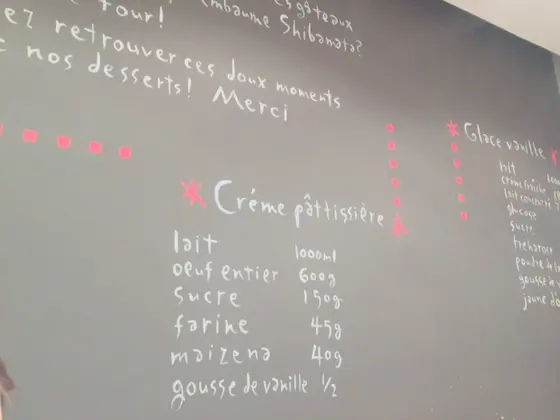 gâteaux
four! embaume Shibamata?
retrouver ces doux moments
nos desserts! Merci
Créme pâttissière
lait 1000ml
oeuf entier 600g
sucre 150g
farine 45g
maizena 40g
gousse de vanille 1/2
Glace vanille
lait
glucose
sucre
trehalose
poudre de
gousse de
jaune d'o